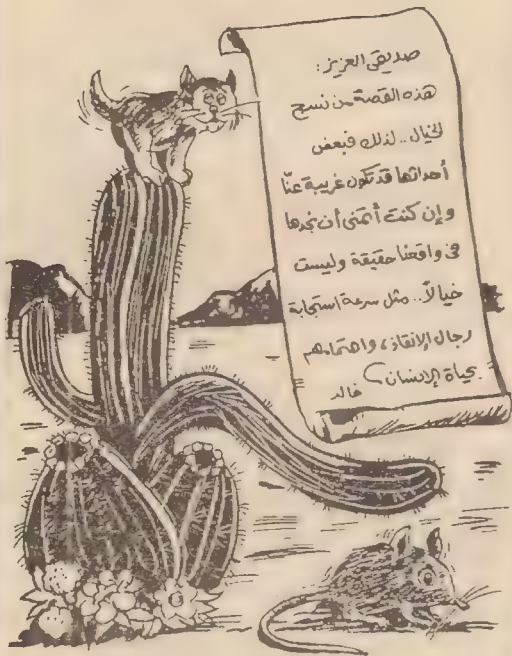 صديقى العزيز :
هذه القصة من نسج
الخيال .. لذلك فبعض
أحداثها قد تكون غريبة عنّا
وإن كنت أتمنى أن نجدها
فى واقعنا حقيقة وليست
خيالاً .. مثل سرعة استجابة
رجال الإنقاذ ، واهتمامهم
بحياة الإنسان خالد